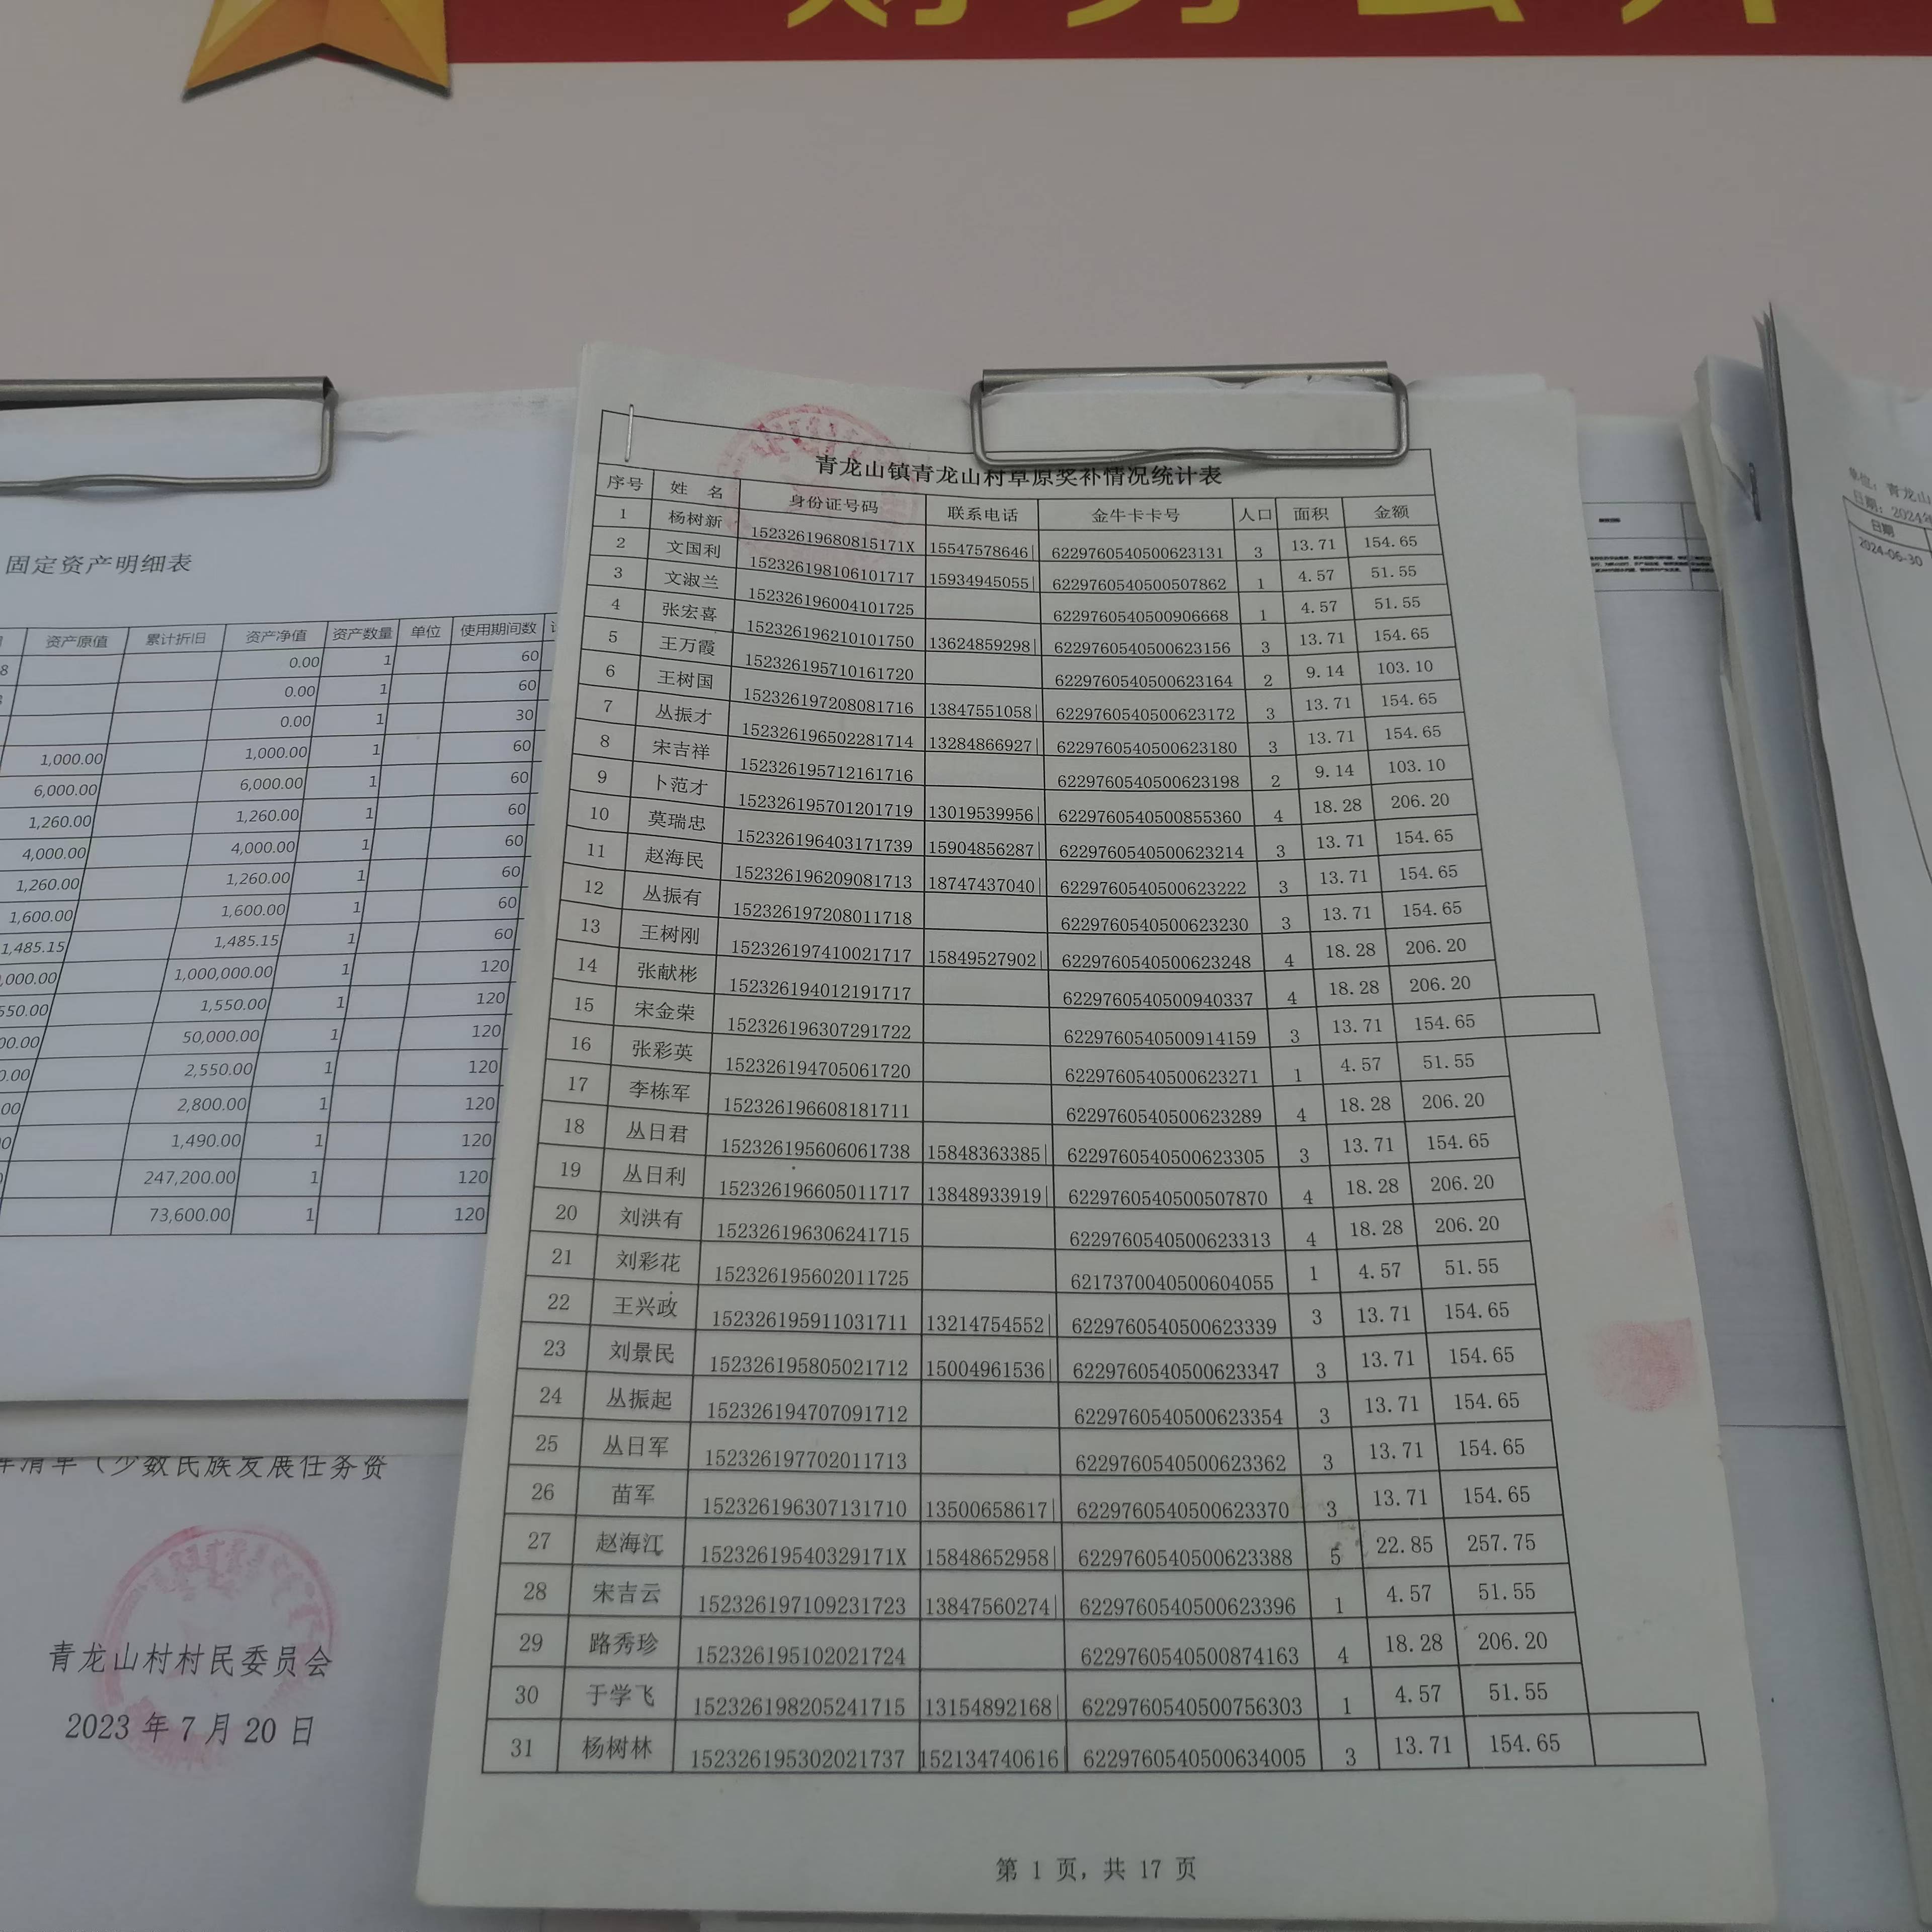 财务公开
青龙山镇青龙山村草原奖补情况统计表
序号 姓 名 身份证号码 联系电话 金牛卡卡号 人口 面积 金额
1 杨树新 15232619680815171X 15547578646 6229760540500623131 3 13.71 154.65
2 文国利 152326198106101717 15934945055 6229760540500507862 1 4.57 51.55
3 文淑兰 152326196004101725 6229760540500906668 1 4.57 51.55
4 张宏喜 152326196210101750 13624859298 6229760540500623156 3 13.71 154.65
5 王万霞 152326195710161720 6229760540500623164 2 9.14 103.10
6 王树国 152326197208081716 13847551058 6229760540500623172 3 13.71 154.65
7 丛振才 152326196502281714 13284866927 6229760540500623180 3 13.71 154.65
8 宋吉祥 152326195712161716 6229760540500623198 2 9.14 103.10
9 卜范才 152326195701201719 13019539956 6229760540500855360 4 18.28 206.20
10 莫瑞忠 152326196403171739 15904856287 6229760540500623214 3 13.71 154.65
11 赵海民 152326196209081713 18747437040 6229760540500623222 3 13.71 154.65
12 丛振有 152326197208011718 6229760540500623230 3 13.71 154.65
13 王树刚 152326197410021717 15849527902 6229760540500623248 4 18.28 206.20
14 张献彬 152326194012191717 6229760540500940337 4 18.28 206.20
15 宋金荣 152326196307291722 6229760540500914159 3 13.71 154.65
16 张彩英 152326194705061720 6229760540500623271 1 4.57 51.55
17 李栋军 152326196608181711 6229760540500623289 4 18.28 206.20
18 丛日君 152326195606061738 15848363385 6229760540500623305 3 13.71 154.65
19 丛日利 152326196605011717 13848933919 6229760540500507870 4 18.28 206.20
20 刘洪有 152326196306241715 6229760540500623313 4 18.28 206.20
21 刘彩花 152326195602011725 6217370040500604055 1 4.57 51.55
22 王兴政 152326195911031711 13214754552 6229760540500623339 3 13.71 154.65
23 刘景民 152326195805021712 15004961536 6229760540500623347 3 13.71 154.65
24 丛振起 152326194707091712 6229760540500623354 3 13.71 154.65
25 丛日军 152326197702011713 6229760540500623362 3 13.71 154.65
26 苗军 152326196307131710 13500658617 6229760540500623370 3 13.71 154.65
27 赵海江 15232619540329171X 15848652958 6229760540500623388 5 22.85 257.75
28 宋吉云 152326197109231723 13847560274 6229760540500623396 1 4.57 51.55
29 路秀珍 152326195102021724 6229760540500874163 4 18.28 206.20
30 于学飞 152326198205241715 13154892168 6229760540500756303 1 4.57 51.55
31 杨树林 152326195302021737 152134740616 6229760540500634005 3 13.71 154.65
第 1 页，共 17 页
固定资产明细表
资产原值 累计折旧 资产净值 资产数量 单位 使用期间数
8 0.00 1 60
0.00 1 60
0.00 1 30
1,000.00 1,000.00 1 60
6,000.00 6,000.00 1 60
1,260.00 1,260.00 1 60
4,000.00 4,000.00 1 60
1,260.00 1,260.00 1 60
1,600.00 1,600.00 1 60
1,485.15 1,485.15 1 60
,000.00 1,000,000.00 1 120
550.00 1,550.00 1 120
00.00 50,000.00 1 120
0.00 2,550.00 1 120
00 2,800.00 1 120
0 1,490.00 1 120
247,200.00 1 120
73,600.00 1 120
清单（少数民族发展任务资
青龙山村村民委员会
2023 年 7 月 20 日
单位：青龙山
日期：2024年
日期
2024-06-30